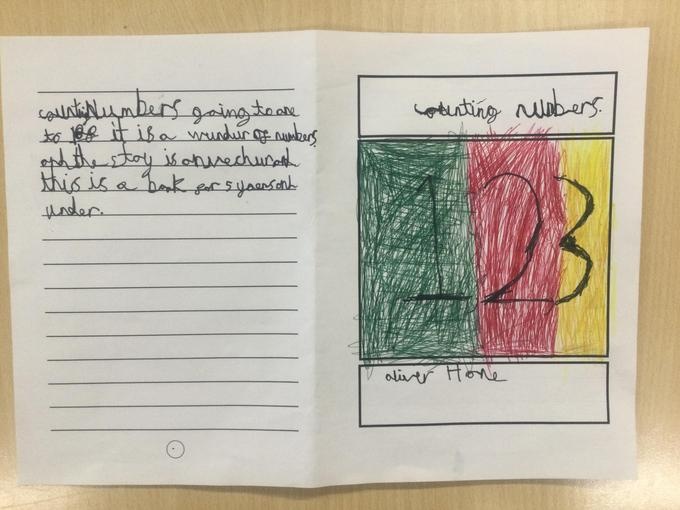 counting Numbers going to one
to it is a wundur of numbers
and the stoy is on
this is a book for 5 yaers and
under.
counting nubers.
123
oliver Hone